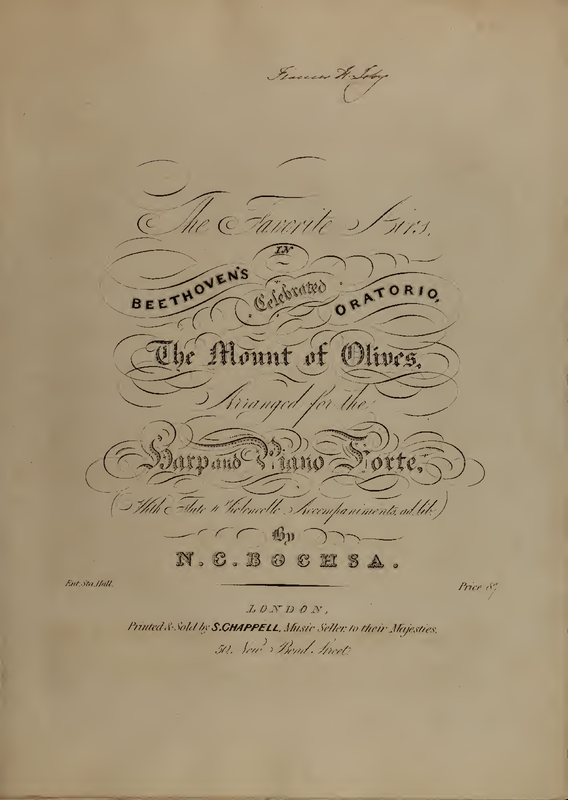 The Favorite Airs,
IN
BEETHOVEN'S Celebrated ORATORIO,
The Mount of Olives,
Arranged for the
Harp and Piano Forte,
(With Flute & Violoncello Accompaniments, ad lib:)
By
N. C. BOCHSA.
Ent. Sta. Hall. Price
LONDON,
Printed & Sold by S. CHAPPELL, Music Seller to their Majesties,
50, New Bond Street.